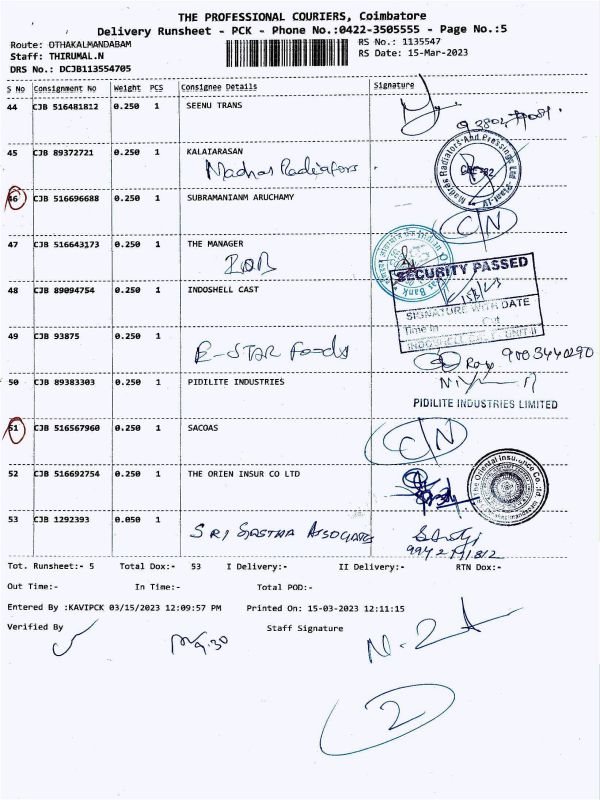 THE PROFESSIONAL COURIERS, Coimbatore
Delivery Runsheet - PCK - Phone No.:0422-3505555 - Page No.:5
Route: OTHAKALMANDABAM
RS No.: 1135547
Staff: THIRUMAL.N
RS Date: 15-Mar-2023
DRS No.: DCJB113554705
S No Consignment No Weight PCS Consignee Details Signature
44 CJB 516481812 0.250 1 SEENU TRANS
45 CJB 89372721 0.250 1 KALAIARASAN
Madras Radiators
Madras Radiators And Pressings Ltd
46 CJB 516696688 0.250 1 SUBRAMANIANM ARUCHAMY
C/N
47 CJB 516643173 0.250 1 THE MANAGER
IOB
SECURITY PASSED
48 CJB 89094754 0.250 1 INDOSHELL CAST
SIGNATURE WITH DATE
Time In Out
49 CJB 93875 0.250 1
E-STAR Foods
9003440290
50 CJB 89383303 0.250 1 PIDILITE INDUSTRIES
PIDILITE INDUSTRIES LIMITED
51 CJB 516567960 0.250 1 SACOAS
C/N
52 CJB 516692754 0.250 1 THE ORIEN INSUR CO LTD
The Oriental Insurance Co. Ltd
53 CJB 1292393 0.050 1
SRI SASTHA ASSOCIATES
Tot. Runsheet:- 5 Total Dox:- 53 I Delivery:- II Delivery:- RTN Dox:-
Out Time:- In Time:- Total POD:-
Entered By :KAVIPCK 03/15/2023 12:09:57 PM Printed On: 15-03-2023 12:11:15
Verified By Staff Signature
9.30
2